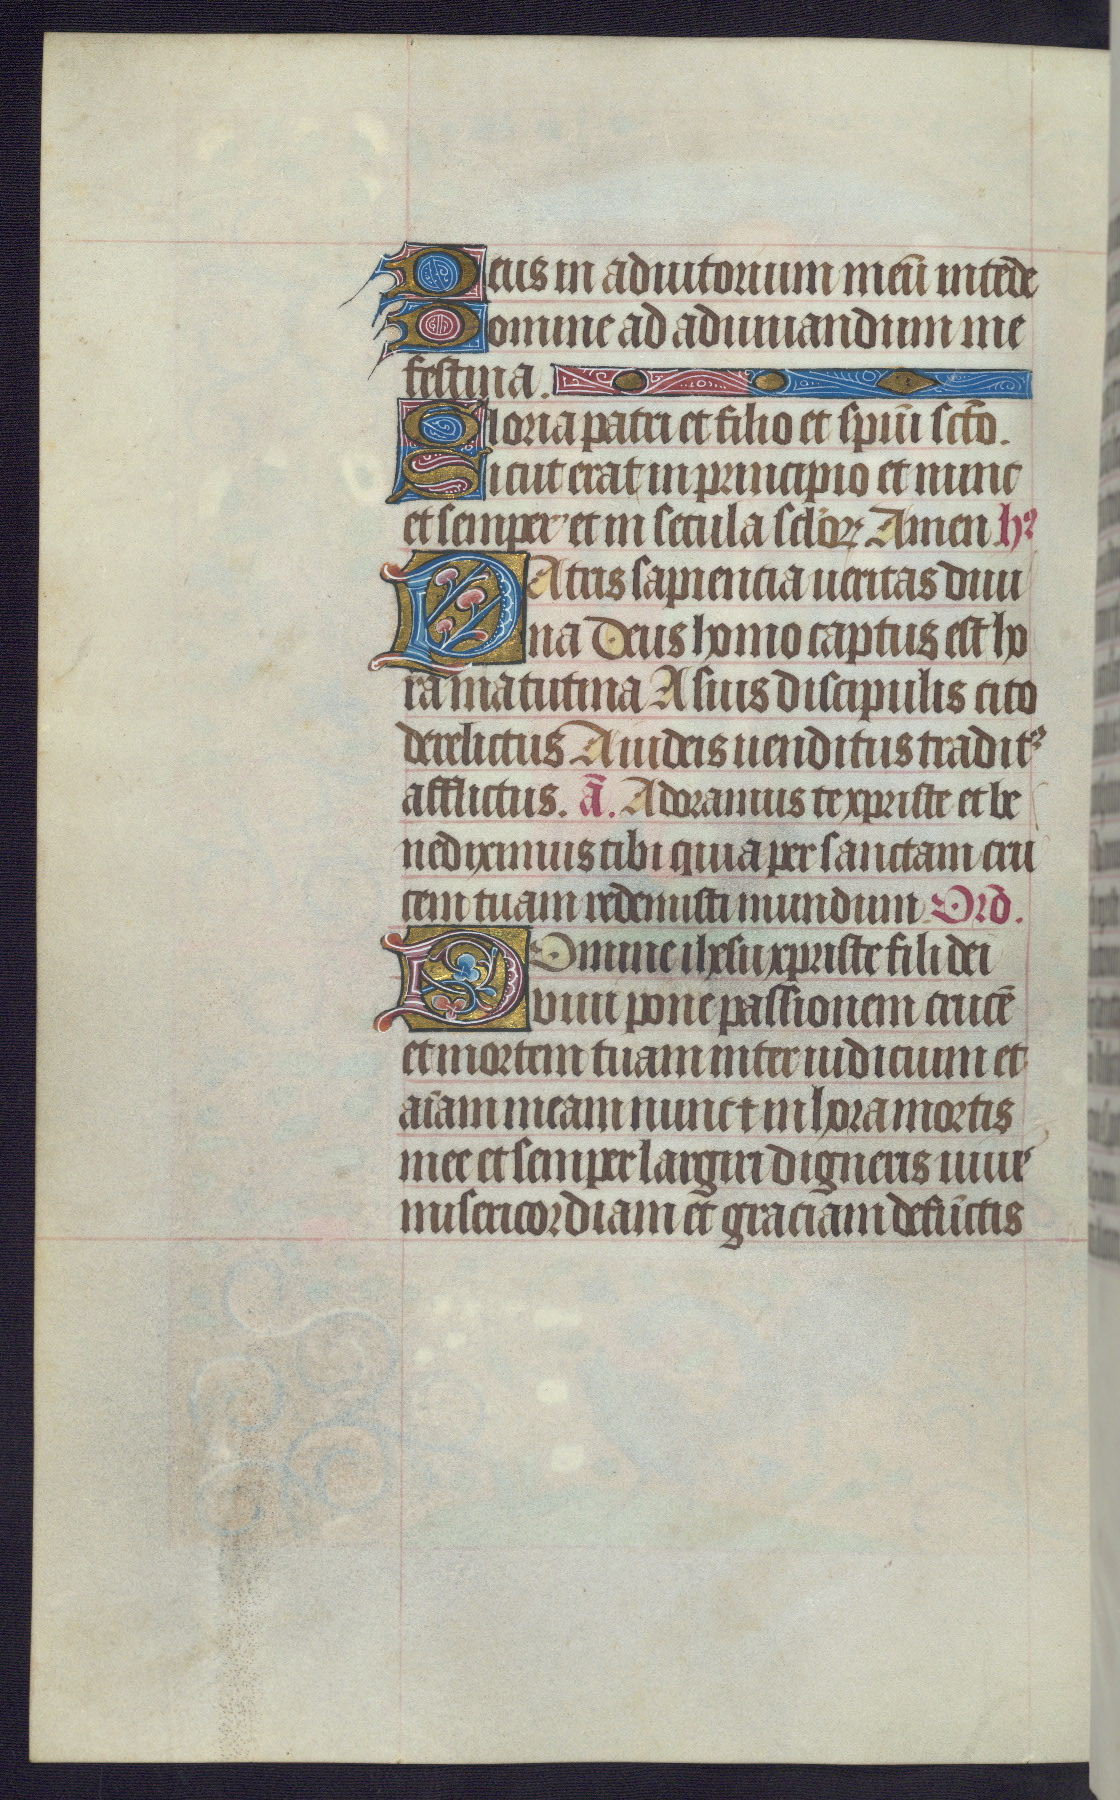 Deus in adiutorium meū intēde
Domine ad adiuuandum me
festina.
Gloria patri et filio et spiūi sct̄o.
Sicut erat in principio et nunc
et semper et in secula scl̄oꝝ Amen hꝰ
PAtris sapientia ueritas diui
na Deus homo captus est ho
ra matutina A suis discipulis cito
derelictus A iudeis uenditus traditꝰ
afflictus. ā. Adoramus te xpriste et be
nediximus tibi quia per sanctam cru
cem tuam redemisti mundum Or̄o.
DOmine ihesu xpriste fili dei
viui pone passionem crucē
et mortem tuam inter iudicium et
aīam meam nunc ⁊ in hora mortis
mee et semper largiri digneris uiuis
misericordiam et graciam defūctis